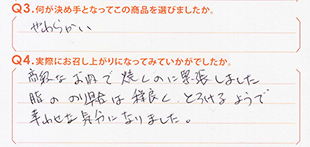 Q3.何が決め手となってこの商品を選びましたか。
やわらかい
Q4.実際にお召し上がりになってみていかがでしたか。
高級なお肉で焼くのに緊張しました
脂ののり具合は程良く、とろけるようで
幸わせな気分になりました。